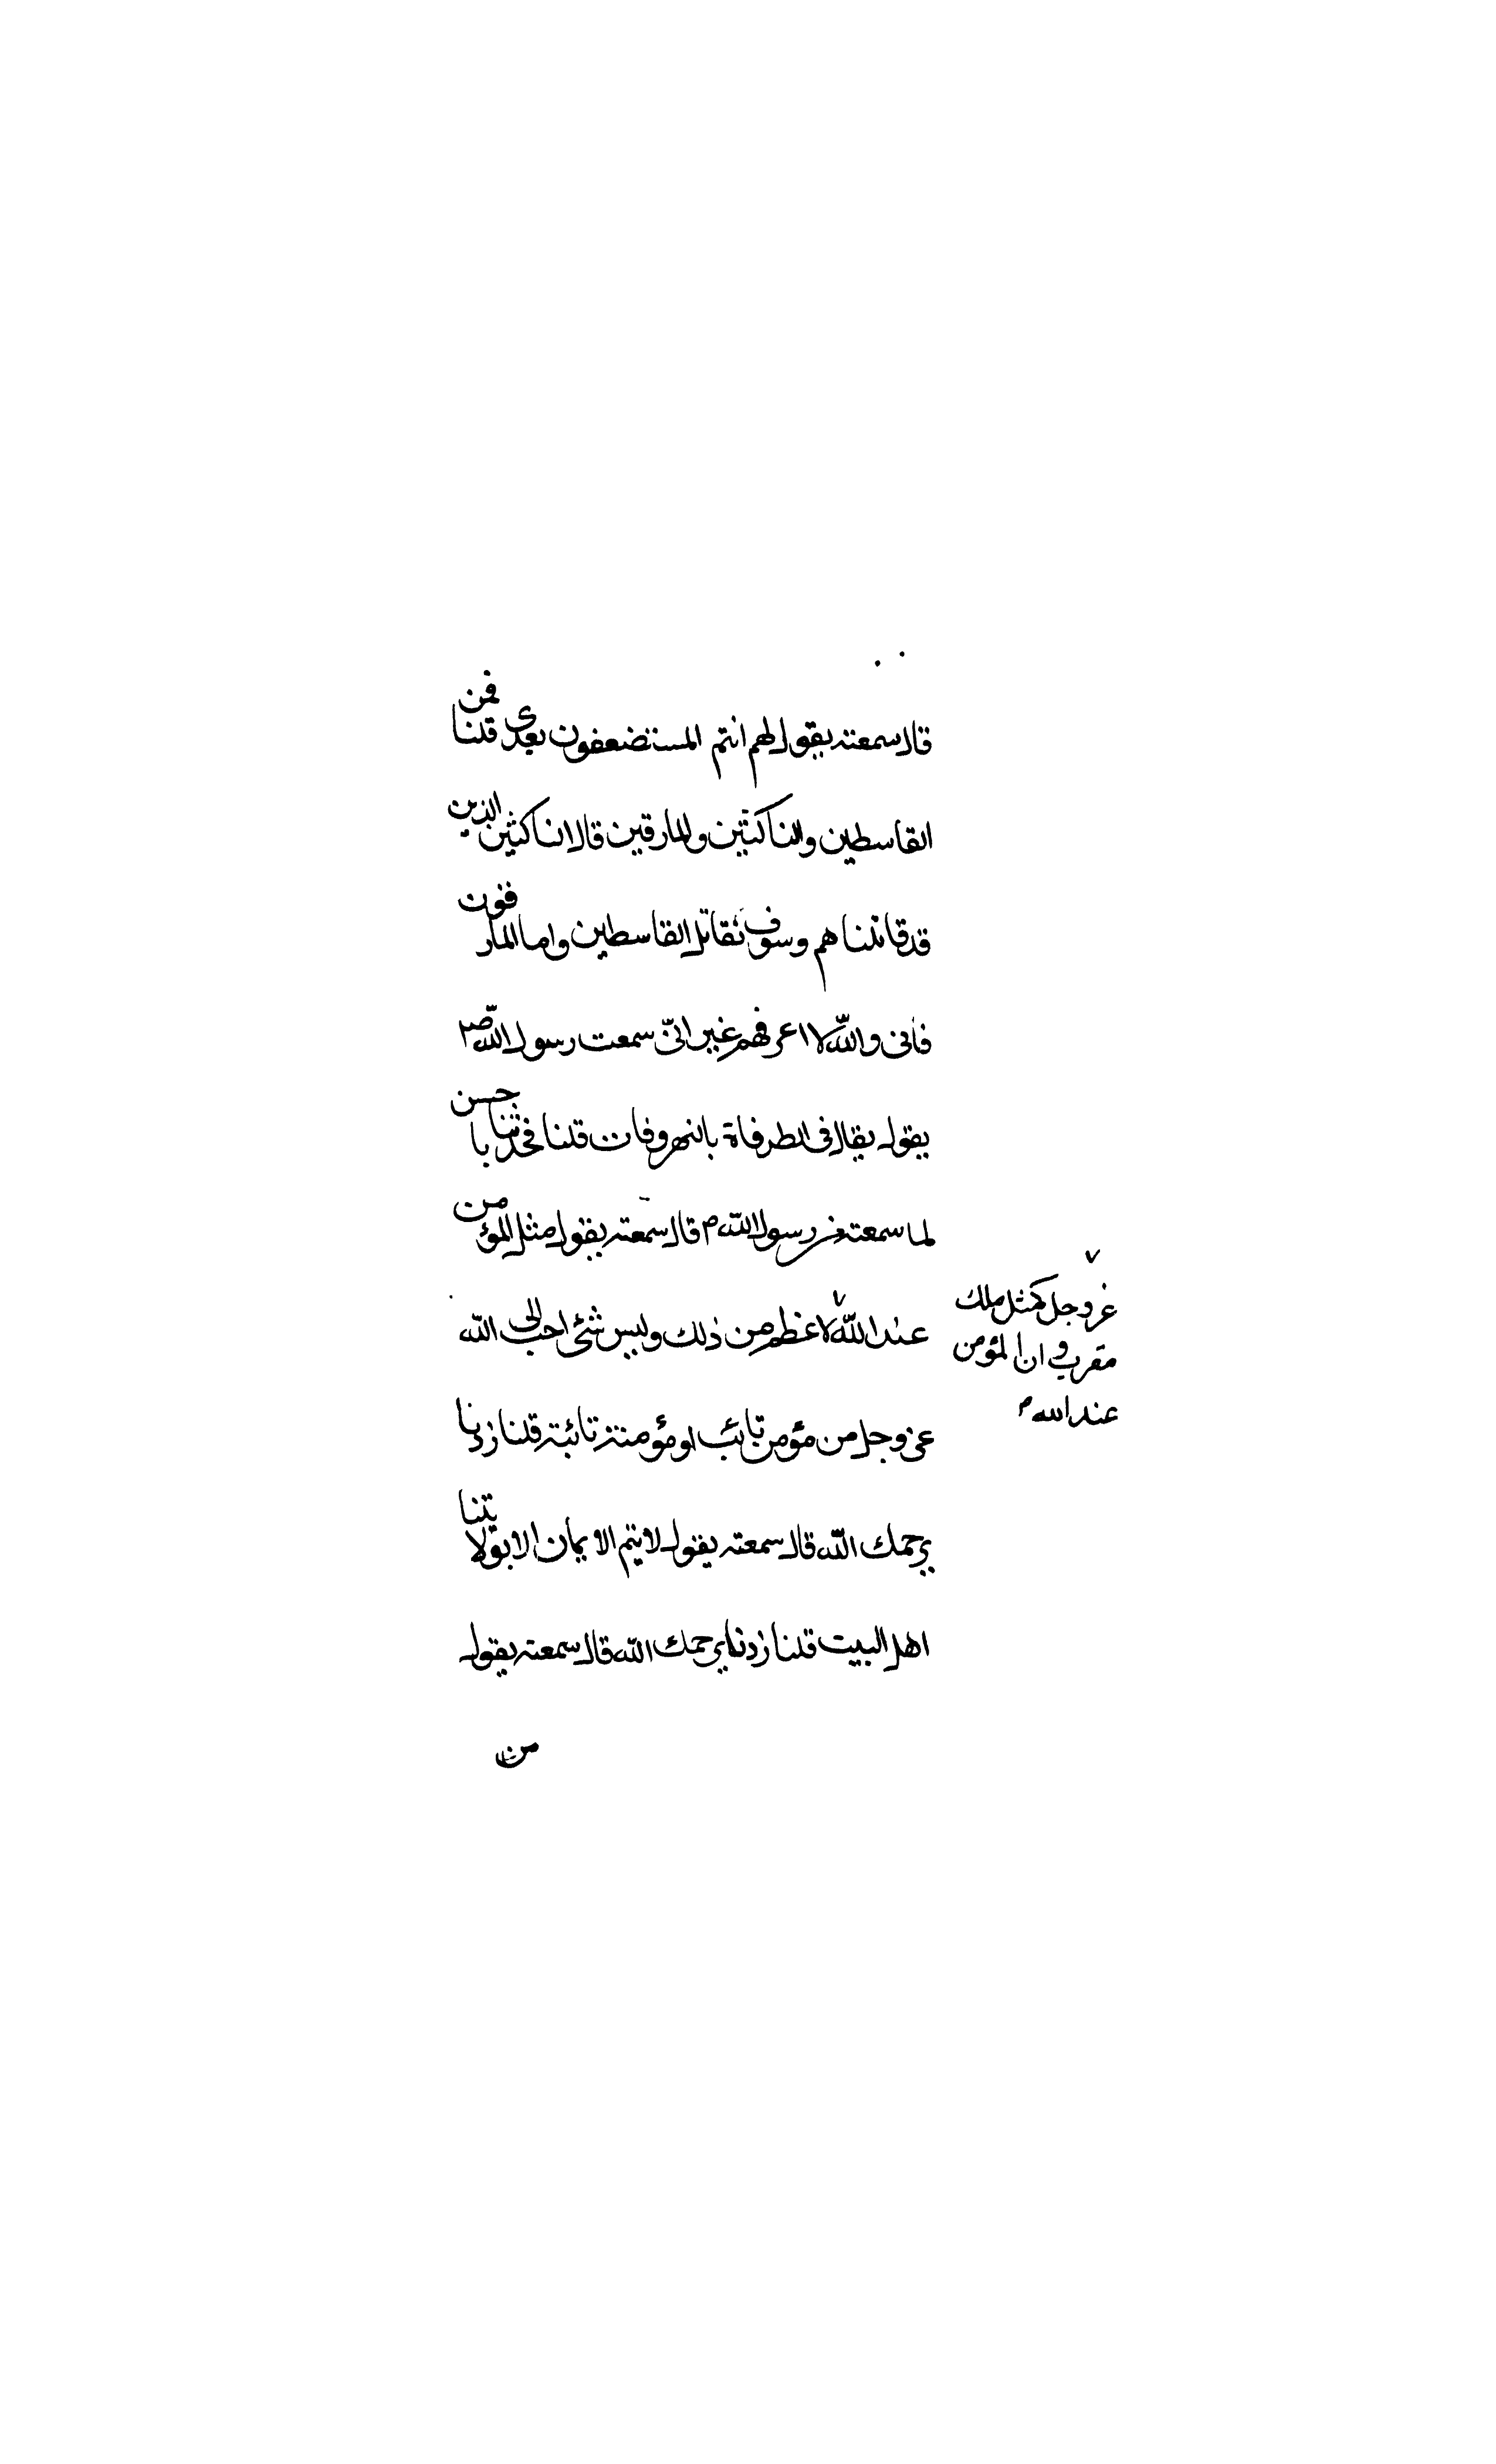 قال سمعته يقول لهم انتم المستضعفون بعدى قلنا فمن
القاسطين والناكثين والمارقين قال الناكثين الذين
قد قاتلناهم وسوف نقاتل القاسطين واما المارقون
فانى والله لا اعرفهم غير انّى سمعت رسول الله ص
يقول يقال فى الطرفاة بالنهروفات قلنا فحدثنا باحسن
لما سمعته من رسول الله م قال سمعته يقول مثل المؤمن
عند الله لا عظم من ذلك وليس شئ احب الى الله
عز وجل كمثل ملك
مقرب و ان المؤمن
عند الله م
عز وجل من مؤمن تائب او مؤمنة تائبة قلنا زدنا
يرحمك الله قال سمعته يقول لا يتم الايمان الا بولايتنا
اهل البيت قلنا زدنا يرحمك الله قال سمعته يقول
من